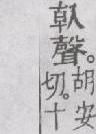 倝聲。
胡安
切。十